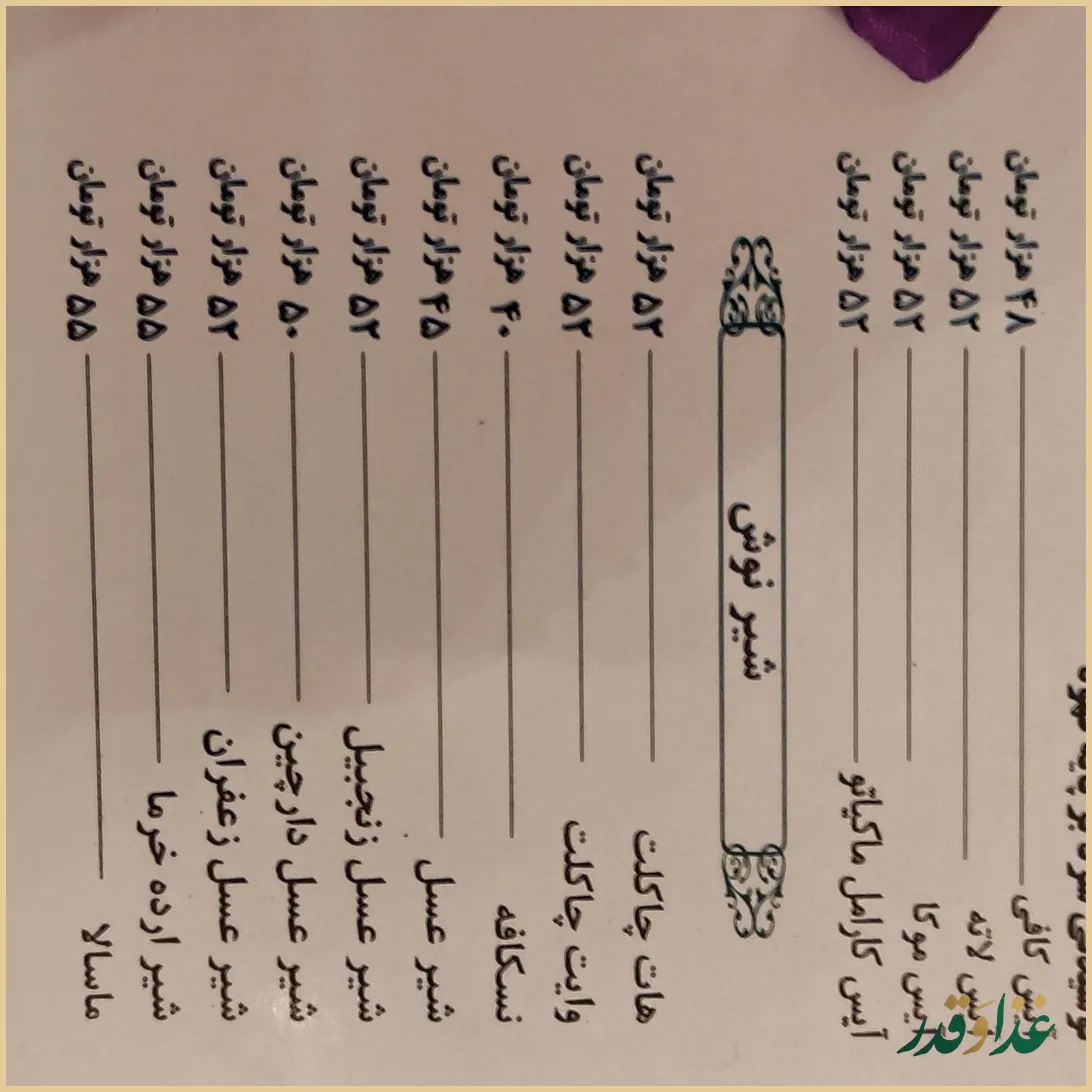 آیس کافی ۴۸ هزار تومان
آیس لاته ۵۲ هزار تومان
آیس موکا ۵۲ هزار تومان
آیس کارامل ماکیاتو ۵۲ هزار تومان
شیر نوش
هات چاکلت ۵۲ هزار تومان
وایت چاکلت ۵۲ هزار تومان
نسکافه ۴۰ هزار تومان
شیر عسل ۴۵ هزار تومان
شیر عسل زنجبیل ۵۲ هزار تومان
شیر عسل دارچین ۵۰ هزار تومان
شیر عسل زعفران ۵۲ هزار تومان
شیر ارده خرما ۵۵ هزار تومان
ماسالا ۵۵ هزار تومان
غذا و قدر